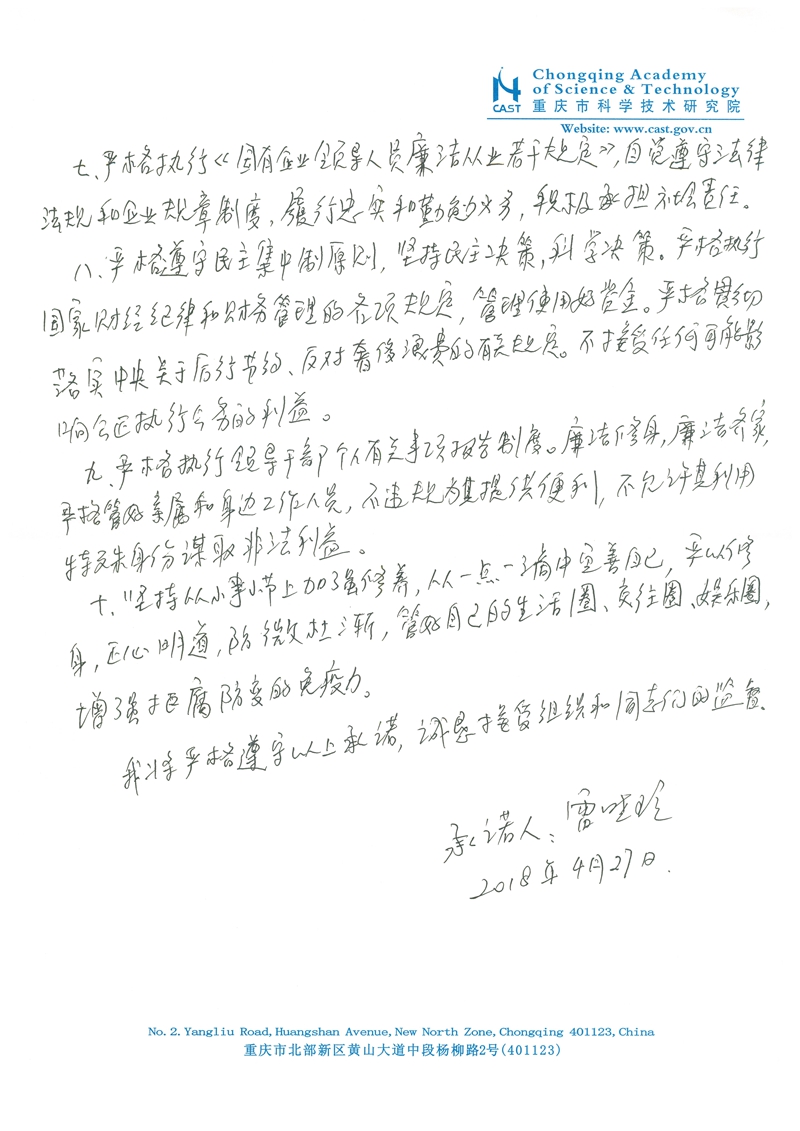 Chongqing Academy
of Science & Technology
CAST
重庆市科学技术研究院
Website: www.cast.gov.cn
七、严格执行《国有企业领导人员廉洁从业若干规定》,自觉遵守法律
法规和企业规章制度,履行忠实和勤勉义务,积极承担社会责任。
八、严格遵守民主集中制原则,坚持民主决策,科学决策。严格执行
国家财经纪律和财务管理的各项规定,管理使用好资金。严格贯彻
落实中央关于厉行节约、反对奢侈浪费的有关规定。不接受任何可能影
响公正执行公务的利益。
九、严格执行领导干部个人有关事项报告制度。廉洁修身,廉洁齐家,
严格管好亲属和身边工作人员,不违规为其提供便利,不允许其利用
特殊身份谋取非法利益。
十、坚持从小事小节上加强修养,从一点一滴中完善自己,严以修
身,正心明道,防微杜渐,管好自己的生活圈、交往圈、娱乐圈,
增强拒腐防变的免疫力。
我将严格遵守以上承诺,诚恳接受组织和同志们的监督。
承诺人:雷
2018年4月27日.
No. 2. Yangliu Road, Huangshan Avenue, New North Zone, Chongqing 401123, China
重庆市北部新区黄山大道中段杨柳路2号(401123)